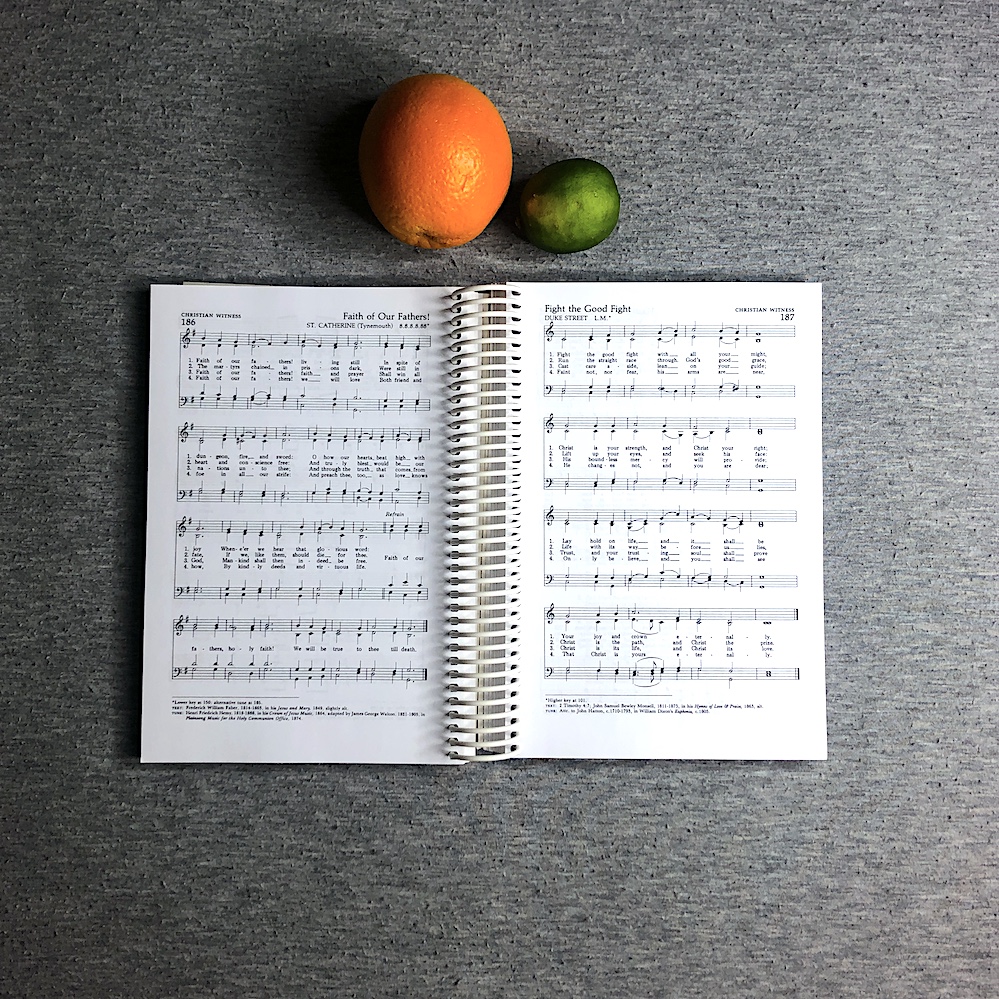 CHRISTIAN WITNESS
186
Faith of Our Fathers!
ST. CATHERINE (Tynemouth) 8.8.8.8.88*
1. Faith of our fa - thers! liv - ing still In spite of
2. The mar - tyrs chained in pris - ons dark, Were still in
3. Faith of our fa - thers! faith and prayer Shall win all
4. Faith of our fa - thers! we will love Both friend and
1. dun - geon, fire and sword: O how our hearts beat high with
2. heart and con - science free: And tru - ly blest would be our
3. na - tions un - to thee; And through the truth that comes from
4. foe in all our strife: And preach thee, too, as love knows
Refrain
1. joy When - e'er we hear that glo - rious word:
2. fate, If we, like them, should die for thee. Faith of our
3. God, Man - kind shall then in - deed be free.
4. how, By kind - ly deeds and vir - tuous life.
fa - thers, ho - ly faith! We will be true to thee till death.
*Lower key at 150; alternative tune at 185.
TEXT: Frederick William Faber, 1814-1863, in his Jesus and Mary, 1849, slightly alt.
TUNE: Henri Friedrich Hemy, 1818-1888, in his Crown of Jesus Music, 1864; adapted by James George Walton, 1821-1905, in
Plainsong Music for the Holy Communion Office, 1874.
Fight the Good Fight
DUKE STREET L.M.*
CHRISTIAN WITNESS
187
1. Fight the good fight with all your might,
2. Run the straight race through God's good grace,
3. Cast care a - side, lean on your guide;
4. Faint not, nor fear, his arms are near,
1. Christ is your strength, and Christ your right;
2. Lift up your eyes, and seek his face;
3. His bound - less mer - cy will pro - vide;
4. He chang - es not, and you are dear,
1. Lay hold on life, and it shall be
2. Life with its way be - fore us lies,
3. Trust, and your trust - ing soul shall prove
4. On - ly be - lieve and you shall see
1. Your joy and crown e - ter - nal - ly.
2. Christ is the path, and Christ the prize.
3. Christ is its life, and Christ its love.
4. That Christ is yours e - ter - nal - ly.
*Higher key at 101.
TEXT: I Timothy 6:12; John Samuel Bewley Monsell, 1811-1875, in his Hymns of Love & Praise, 1863; alt.
TUNE: Attr. to John Hatton, c.1710-1793, in William Dixon's Euphonia, c.1805.